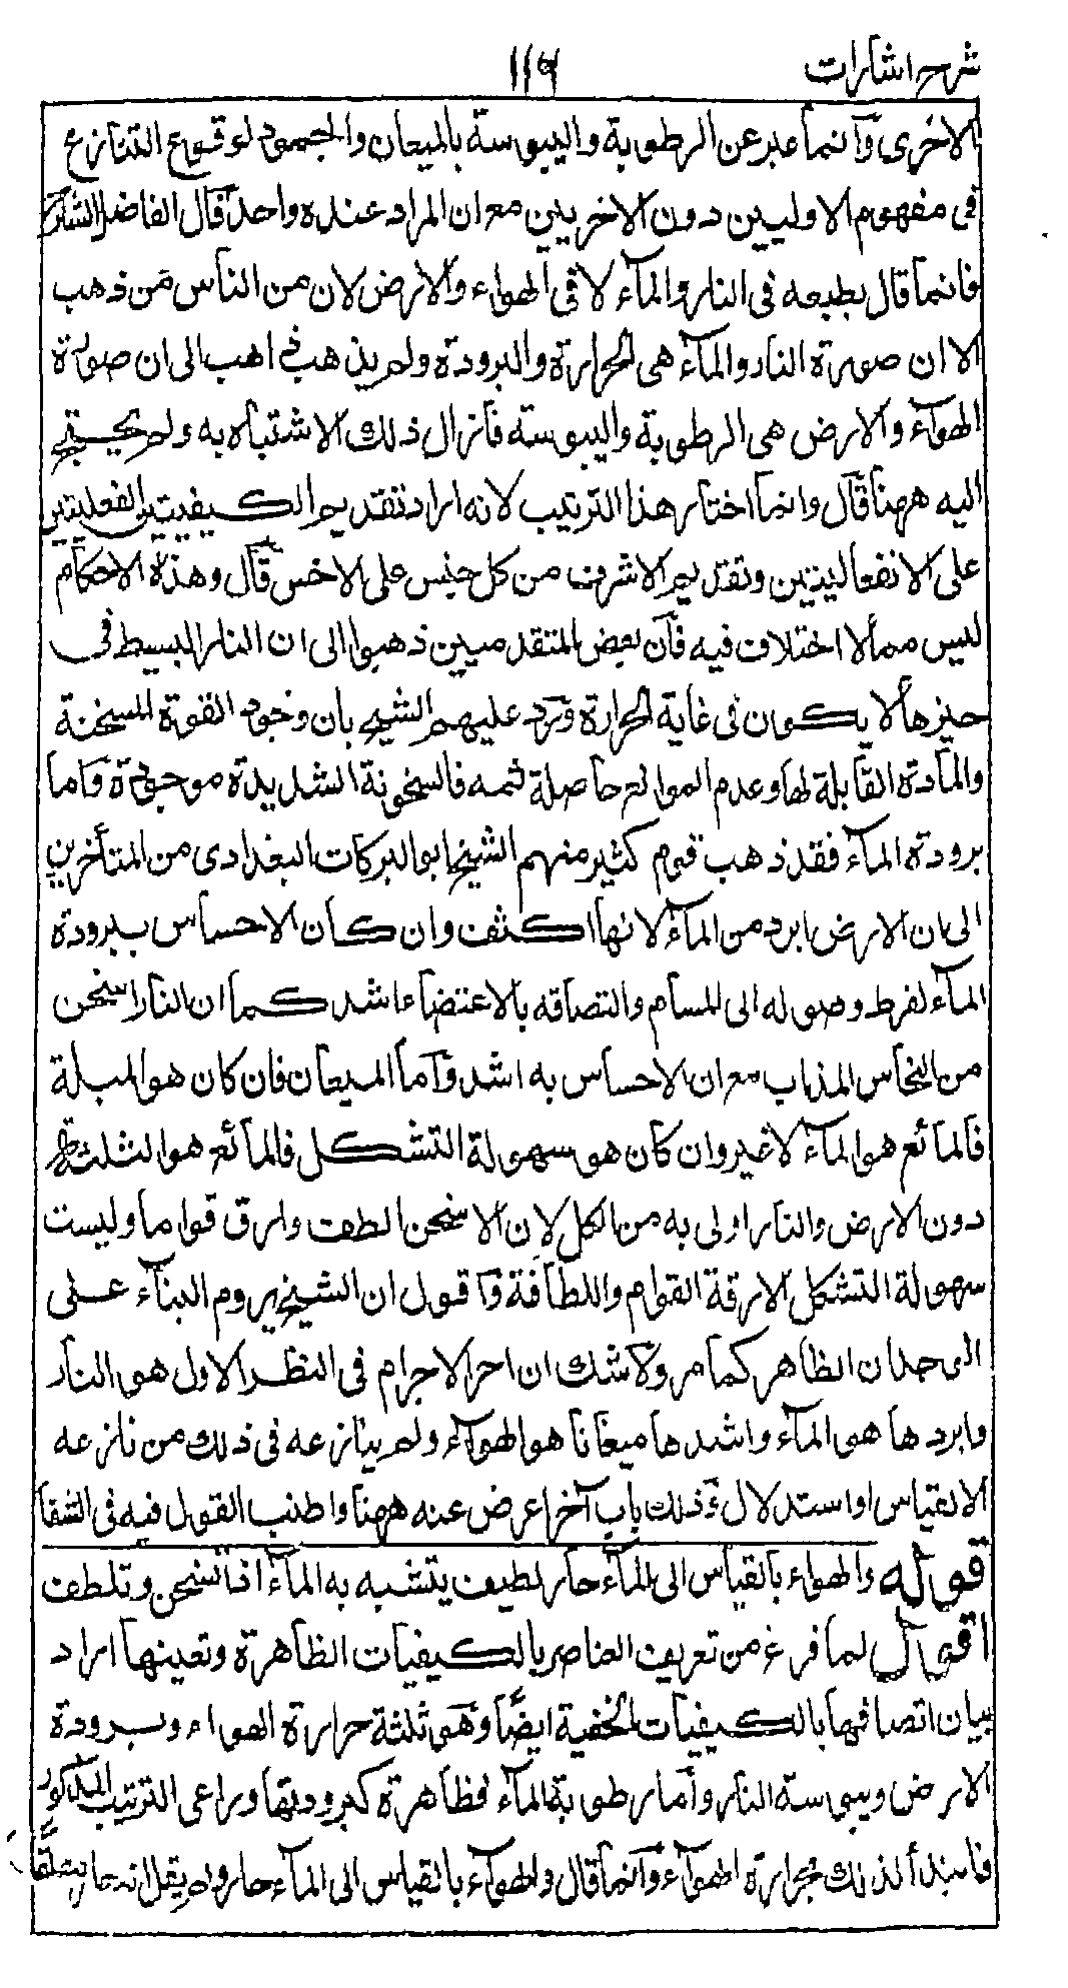 شرح اشارات ١١٦
الاخرى وآنما عبر عن الرطوبة واليبوسة بالميعان والجمود لوقوع التنازع
فى مفهوم الاوليين دون الاخريين مع ان المراد عنده واحد قال الفاضل الشارح
فانما قال بطبعه فى النار والمآء لا فى الهواء والارض لان من الناس من ذهب
الا ان صورة النار والمآء هى الحرارة والبرودة ولم يذهب ذاهب الى ان صورة
الهوآء والارض هى الرطوبة واليبوسة فازال ذلك الاشتباه به ولم يحتج
اليه ههنا قال وانما اختار هذا الترتيب لانه اراد تقديم الكيفيتين الفعليتين
على الانفعاليتين وتقديم الاشرف من كل جنس على الاخس قال وهذه الاحكام
ليس مما لا اختلاف فيه فان بعض المتقدمين ذهبوا الى ان النار البسيط فى
حيزها لا يكون فى غاية الحرارة ورد عليهم الشيخ بان وجود القوة المسخنة
والمادة القابلة لها وعدم الموانع حاصلة ثمه فالسخونة الشديدة موجودة واما
برودة المآء فقد ذهب قوم كثير منهم الشيخ ابو البركات البغدادى من المتأخرين
الى ان الارض ابرد من المآء لانها اكثف وان كان الاحساس ببرودة
المآء لفرط وصوله الى المسام والتصاقه بالاعتضاء اشد كما ان النار اسخن
من النحاس المذاب مع ان الاحساس به اشد وآما الميعان فان كان هو المبلة
فالمائع هو المآء لا غير وان كان هو سهولة التشكل فالمائع هو الثلثة
دون الارض والنار اولى به من الكل لان الاسخن الطف وارق قواما وليست
سهولة التشكل الا رقة القوام واللطافة وآقول ان الشيخ يروم البنآء على
الوجدان الظاهر كما مر ولا شك ان احر الاجرام فى النظر الاول هو النار
وابردها هو المآء واشدها ميعانا هو الهوآء ولم ينازعه فى ذلك من نازعه
الا لقياس او استدلال وذلك باب آخر اعرض عنه ههنا واطنب القول فيه فى الشفا
قوله والهواء بالقياس الى المآء حار لطيف يتشبه به المآء اذا تسخن وتلطف
اقول لما فرغ من تعريف العناصر بالكيفيات الظاهرة وتعينها اراد
بيان اتصافها بالكيفيات الخفية ايضاً وهى ثلثة حرارة الهواء وبرودة
الارض ويبوسة النار وأما رطوبة المآء فظاهرة كبرودتها وراعى الترتيب المذكور
فابتدأ لذلك بحرارة الهوآء وآنما قال والهوآء بالقياس الى المآء حار ولم يقل انه حار مطلقا